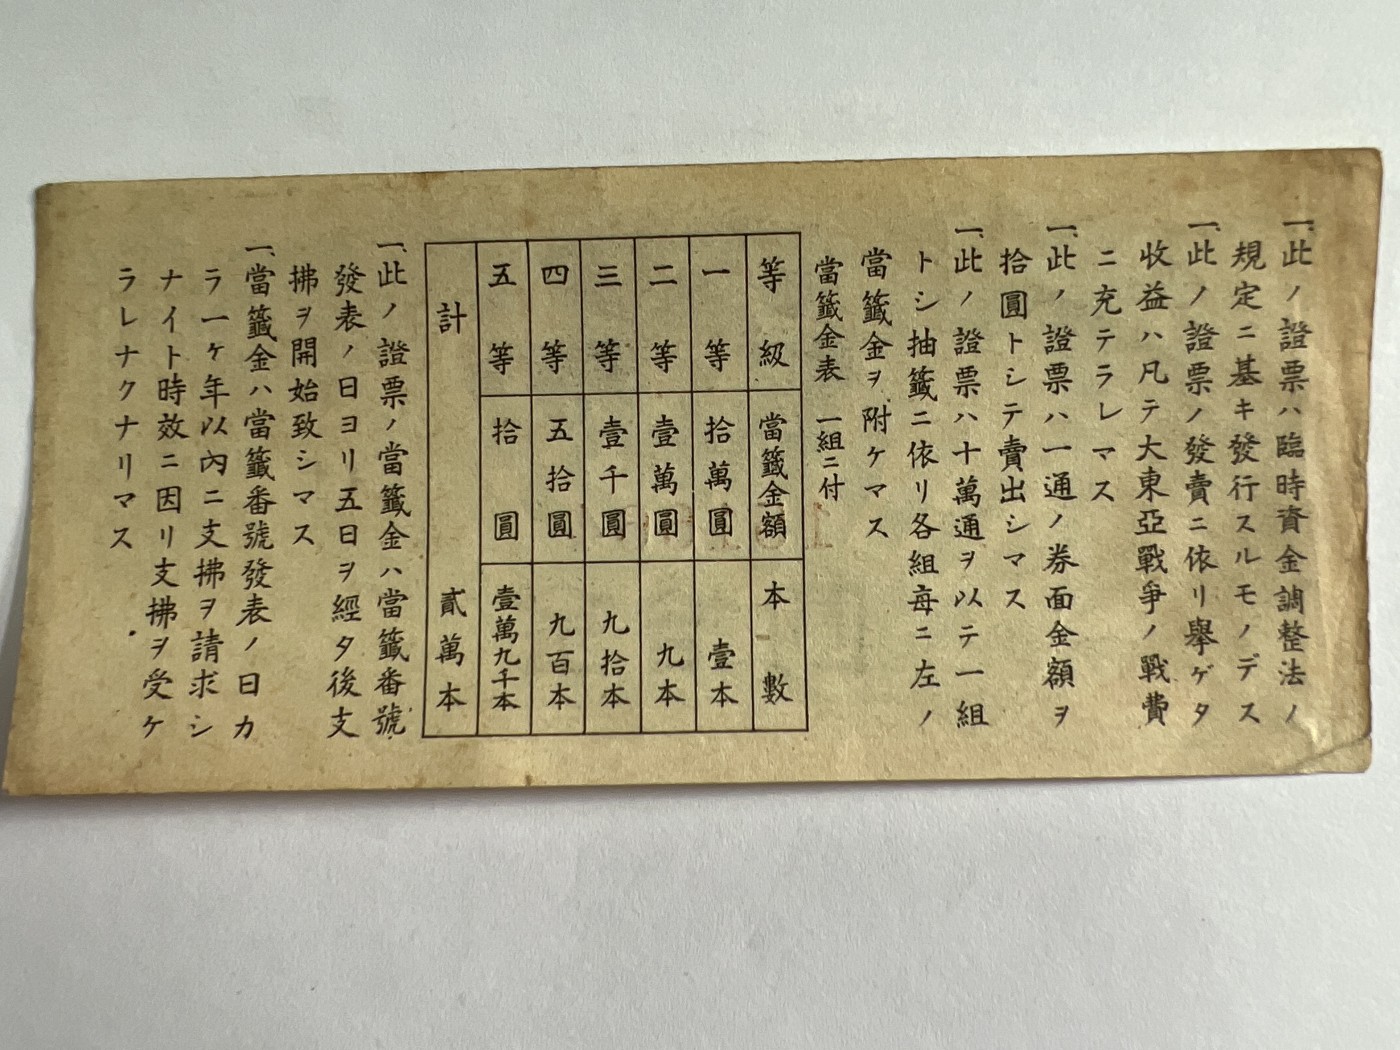 一、此ノ證票ハ臨時資金調整法ノ
規定ニ基キ發行スルモノデス
一、此ノ證票ノ發賣ニ依リ擧ゲタ
收益ハ凡テ大東亞戰爭ノ戰費
ニ充テラレマス
一、此ノ證票ハ一通ノ券面金額ヲ
拾圓トシテ賣出シマス
一、此ノ證票ハ十萬通ヲ以テ一組
トシ抽籤ニ依リ各組每ニ左ノ
當籤金ヲ附ケマス
當籤金表 一組ニ付
等級 當籤金額 本數
一等 拾萬圓 壹本
二等 壹萬圓 九本
三等 壹千圓 九拾本
四等 五拾圓 九百本
五等 拾圓 壹萬九千本
計 貳萬本
一、此ノ證票ノ當籤金ハ當籤番號
發表ノ日ヨリ五日ヲ經タ後支
拂ヲ開始致シマス
一、當籤金ハ當籤番號發表ノ日カ
ラ一ヶ年以內ニ支拂ヲ請求シ
ナイト時效ニ因リ支拂ヲ受ケ
ラレナクナリマス